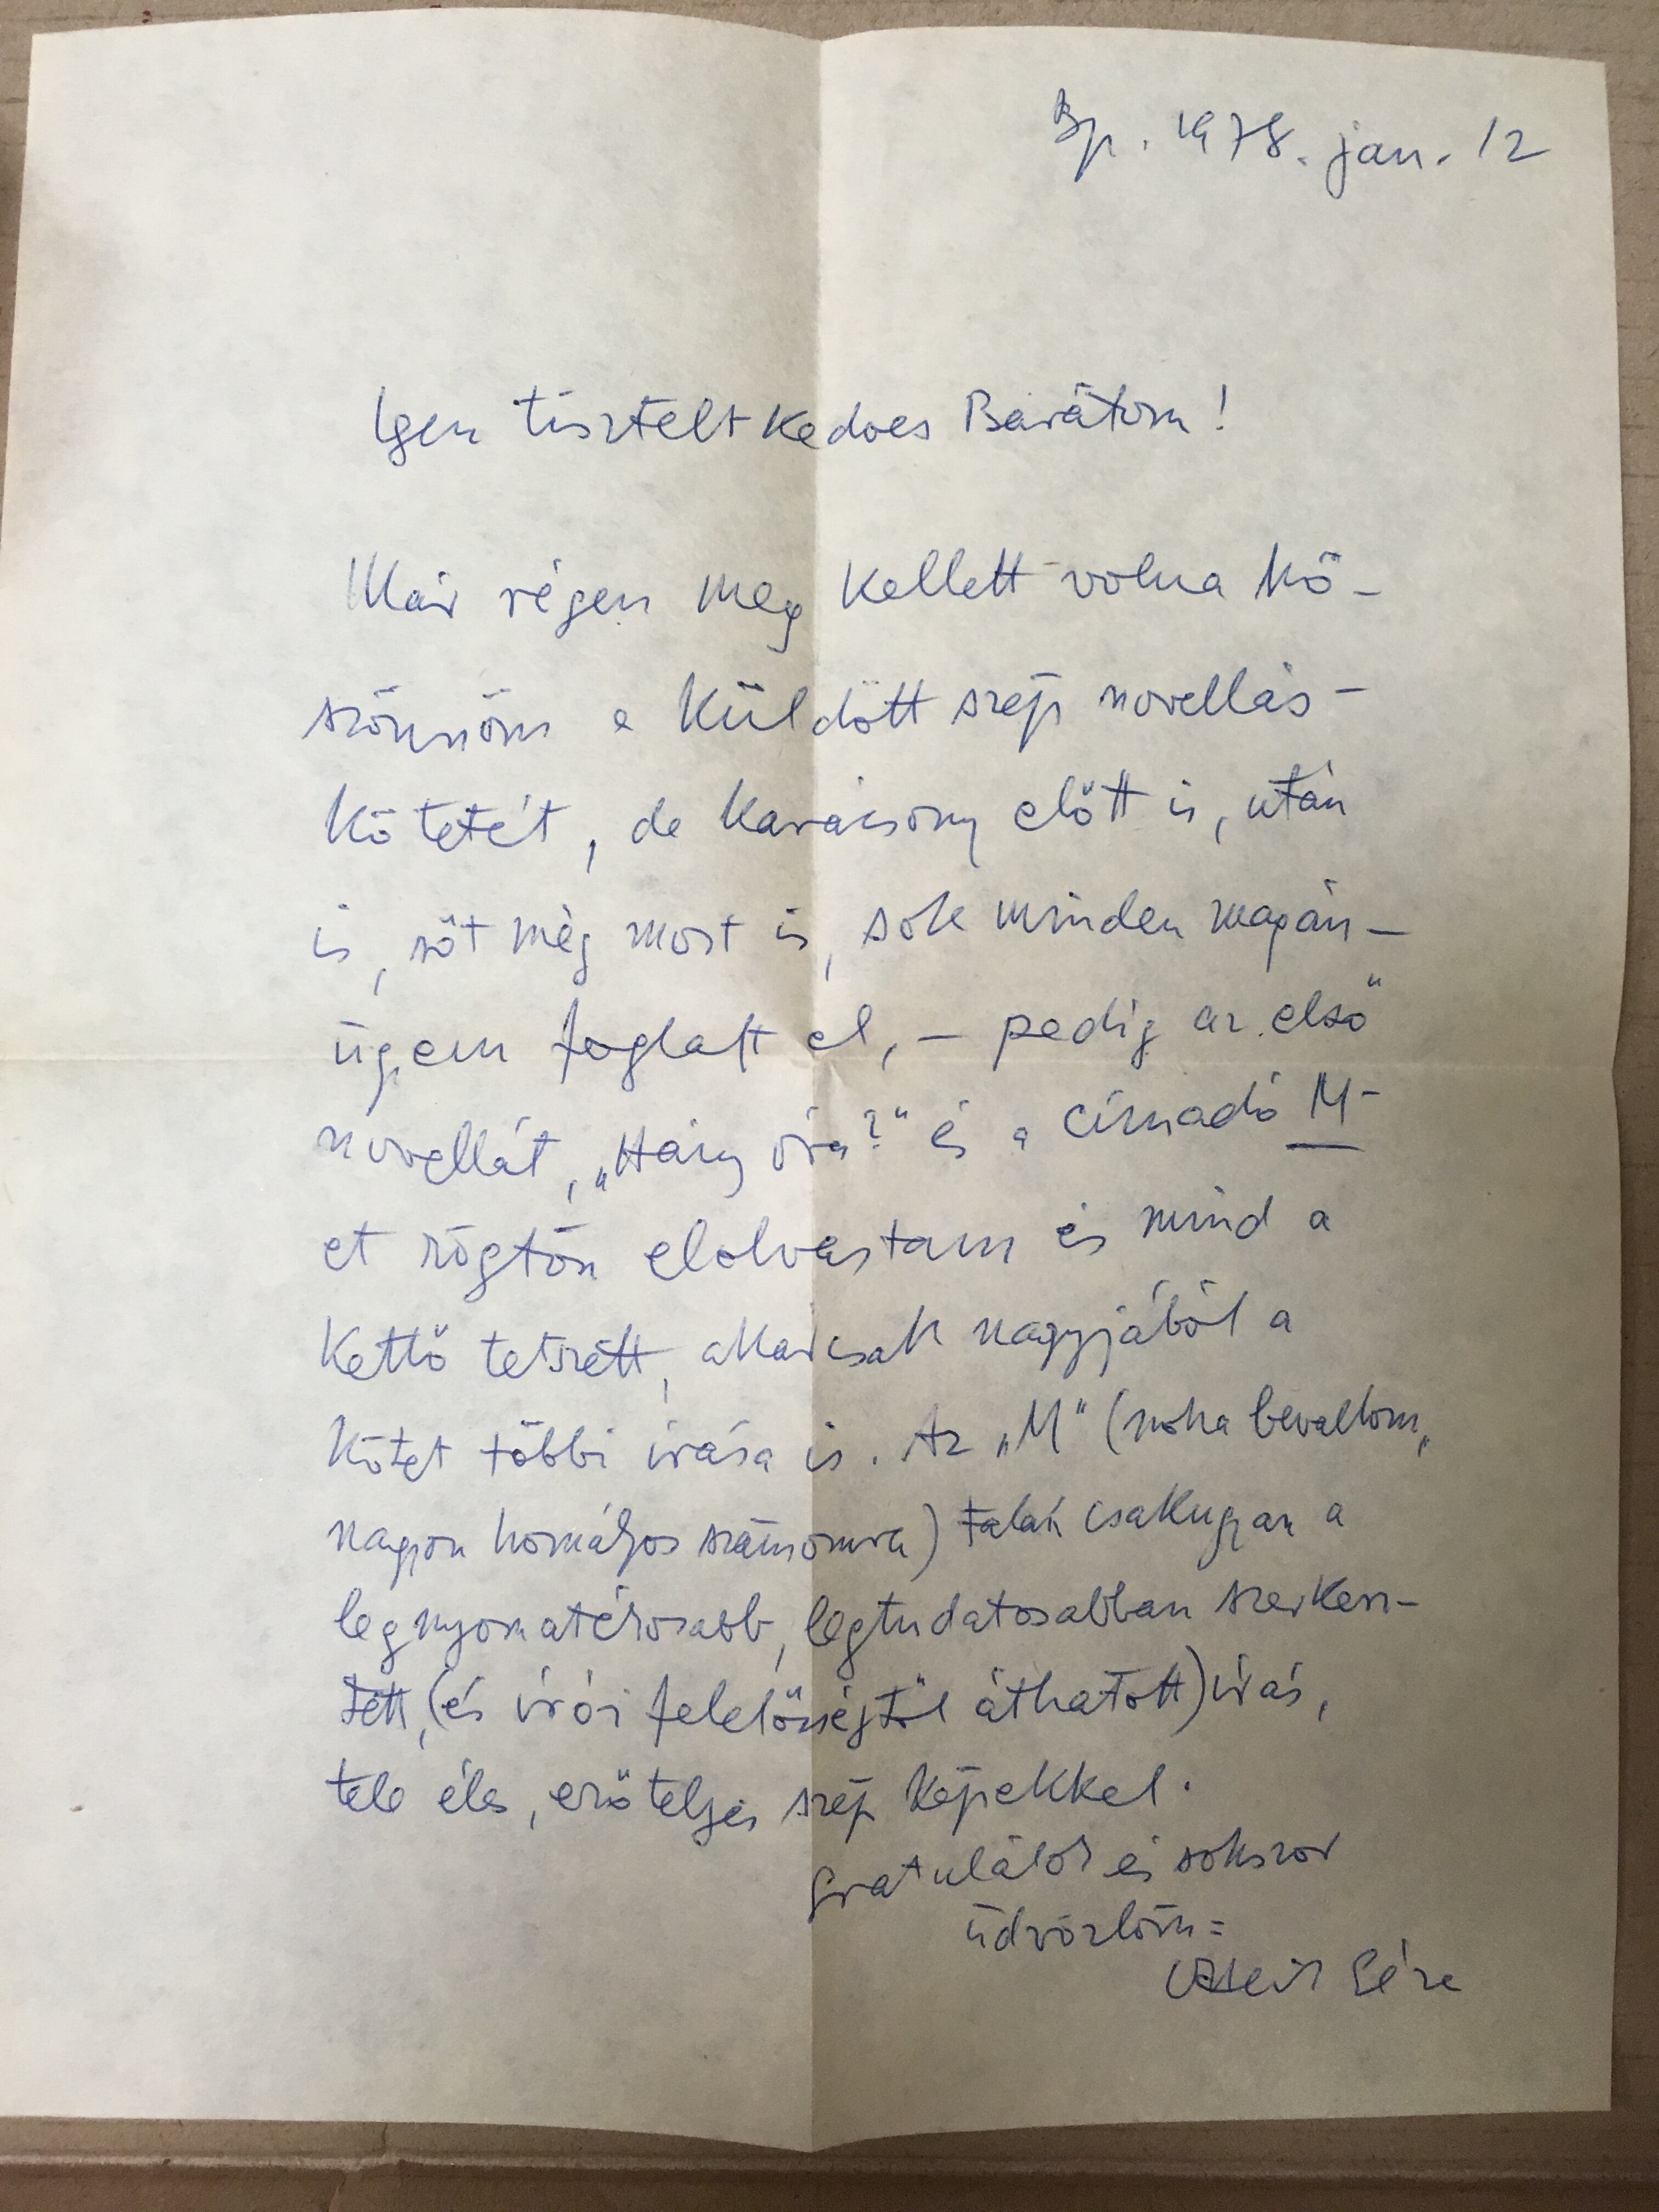 Bp. 1978. jan. 12
Igen tisztelt kedves Barátom!
Már régen meg kellett volna kö-
szönnöm a küldött szép novellás-
kötetét, de karácsony előtt is, után
is, sőt még most is, sok minden magán-
ügyem foglalt el, – pedig az első
novellát, „Hány óra?" és a címadó M-
et rögtön elolvastam és mind a
kettő tetszett, akárcsak nagyjából a
kötet többi írása is. Az „M" (noha bevallom,
nagyon homályos számomra) talán csakugyan a
legnyomatékosabb, legtudatosabban szerkesz-
tett, (és írói felelősségtől áthatott) írás,
tele éles, erőteljes szép képekkel.
Gratulálok és sokszor
üdvözlöm:
Géza